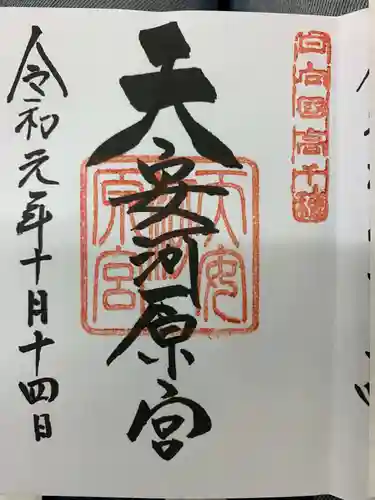 日向国高千穂
天安河原宮
天安
河
原宮
令和元年十月十四日